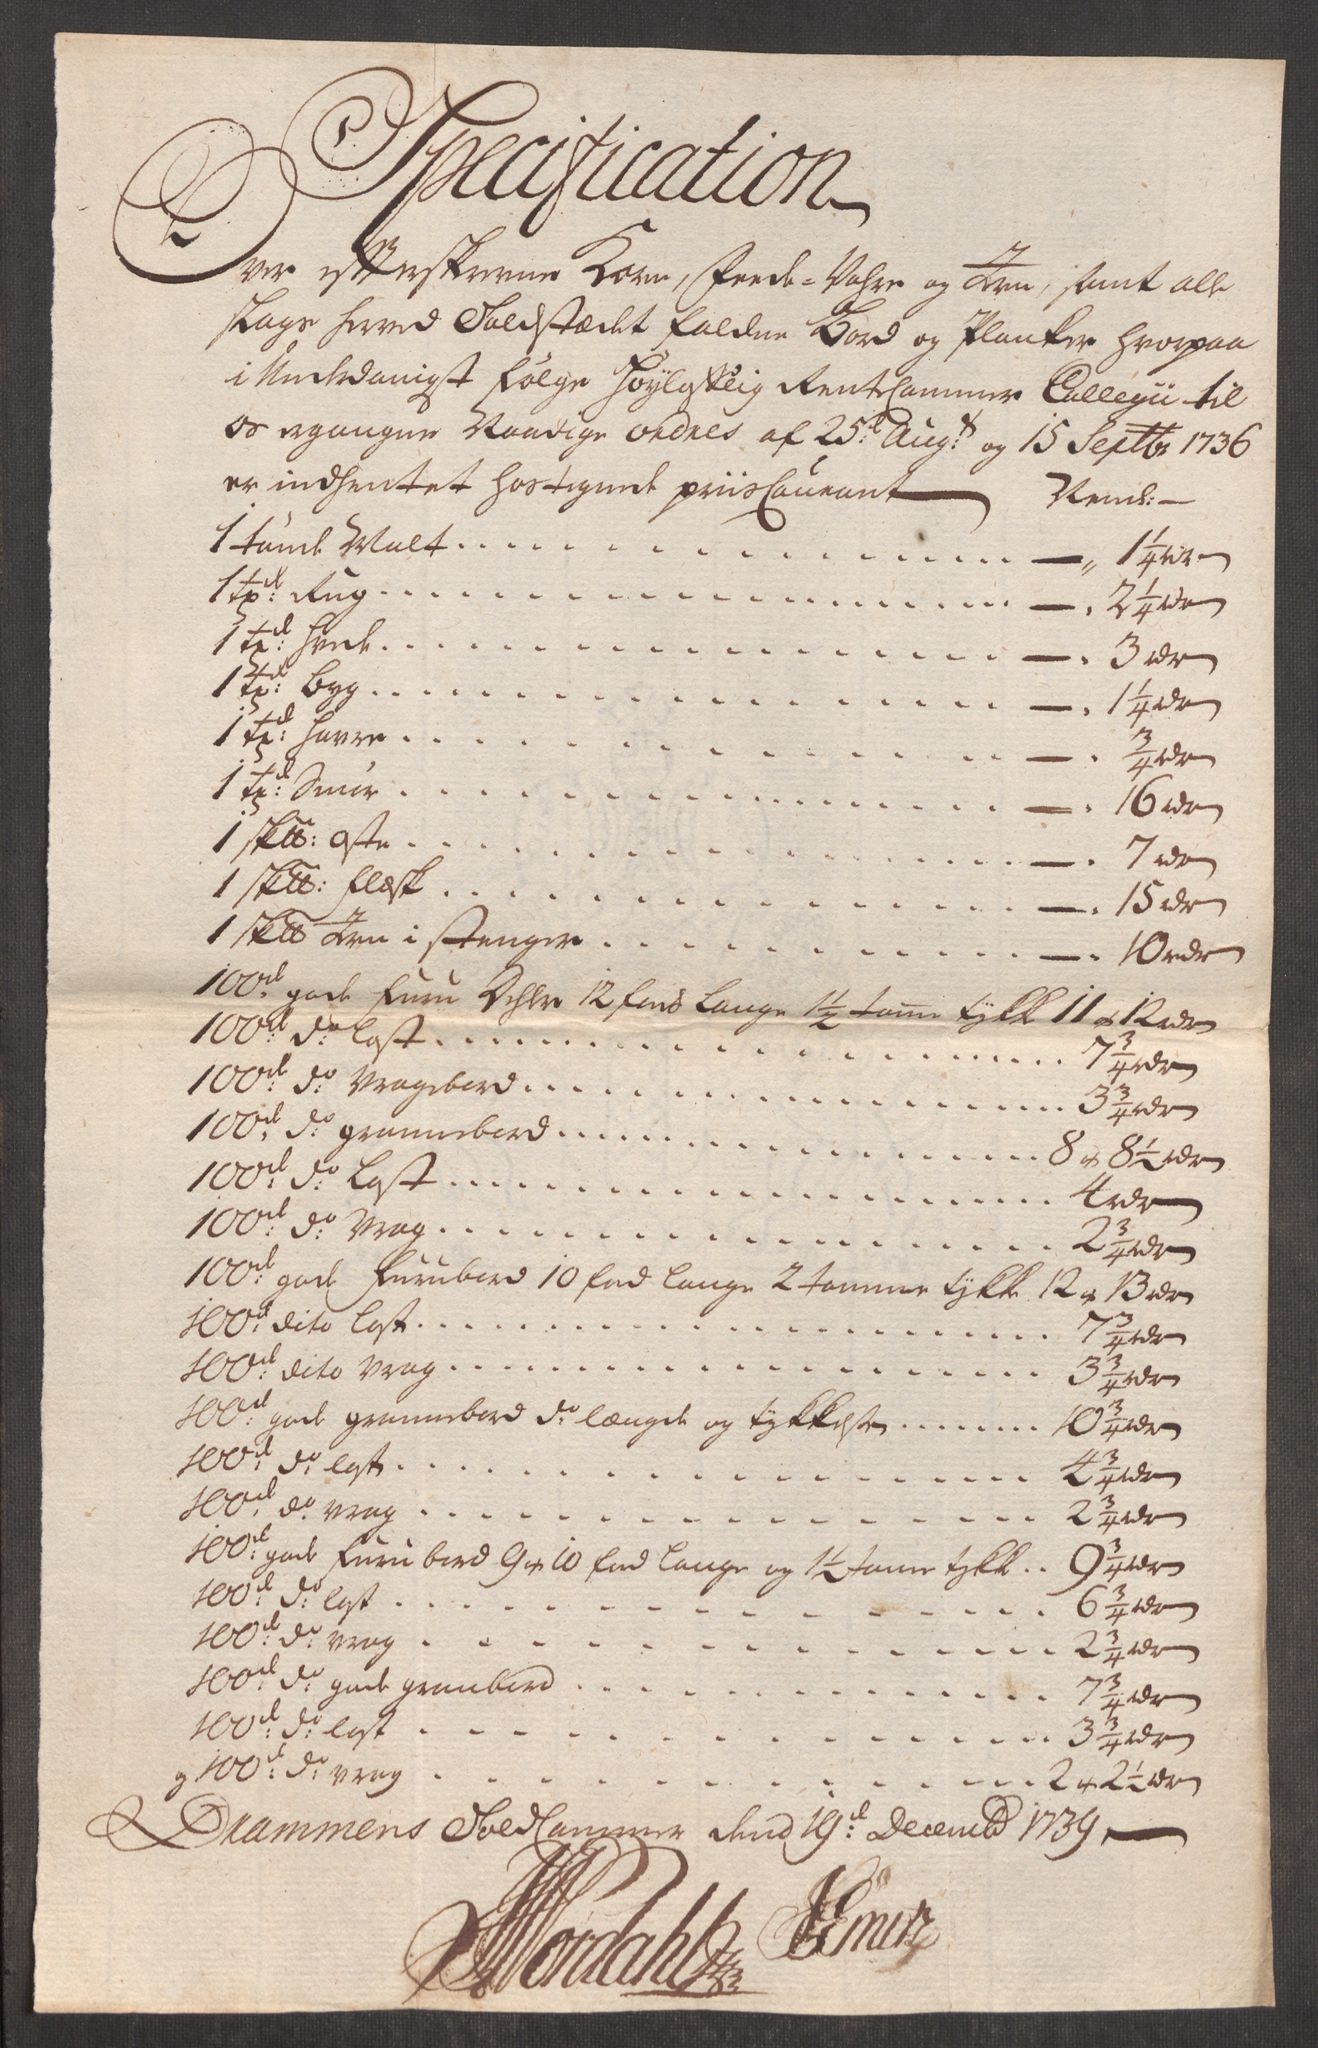 Specification
Over efterskrevne Korn, Feede-Vahre og Jern, samt alle
slags herved Toldstædet faldne Bord og Planker hvorpaa
i Underdanigst følge Høylovlig Rente Cammer Collegii til
os ergangne Naadige ordres af 25.de Aug.t og 15 Septbr 1736
er indhentet hostegnede priis Courant Neml:
1 tønde Malt — „ 1¼ rdr
1 td: Rug — . 2¼ rdr
1 td: hvede — . 3 rdr
1 td: byg — . 1¼ rdr
1 td: havre — . ¾ rdr
1 td: Smør — . 16 rdr
1 sk℔: oste — . 7 rdr
1 sk℔: flæsk — . 15 rdr
1 sk℔ Jern i stenger — . 10 rdr
100de gode furu Dehler 12 fods lange 1½ tomme tykk 11 a 12 rdr
100de do: last 7¾ rdr
100de do: Vragebord 3¾ rdr
100de do: grannebord 8 a 8½ rdr
100de do: Last 4 rdr
100de do: Vrag 2¾ rdr
100de gode furubord 10 fod lange 2 tomme tykke 12 a 13 rdr
100de dito last 7¾ rdr
100de dito Vrag 3¾ rdr
100de gode grannebord do: længde og tykkelse 10¾ rdr
100de do: last 4¾ rdr
100de do: vrag 2¾ rdr
100de gode furu bord 9 a 10 fod lange og 1½ tomme tykk 9¾ rdr
100de do: last 6¾ rdr
100de do: vrag 2¾ rdr
100de do: gode granbord 7¾ rdr
100de do: last 3¾ rdr
og 100de do: vrag 2 a 2½ rdr
Drammens Told Cammer dend 19de Decembr 1739
Nordahl